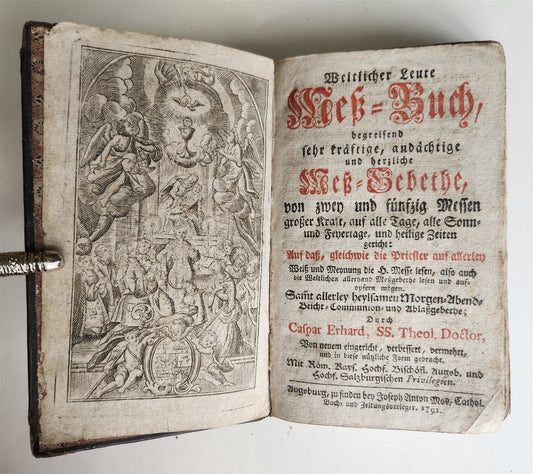 Weltlicher Leute
Meß-Buch,
begreifend
sehr kräftige, andächtige
und herzliche
Meß-Gebethe,
von zwey und fünfzig Messen
großer Kraft, auf alle Tage, alle Sonn-
und Feyertage, und heilige Zeiten
gericht:
Auf daß, gleichwie die Priester auf allerley
Weiß und Meynung die H. Messe lesen, also auch
die Weltlichen allerhand Meßgebethe lesen und auf-
opfern mögen.
Samt allerley heylsamen Morgen-Abend-
Beicht-Communion- und Ablaßgebethe;
Durch
Caspar Erhard, SS. Theol. Doctor,
Von neuem eingericht, verbessert, vermehrt,
und in diese nützliche Form gebracht.
Mit Röm. Kays. Hochf. Bischöfl. Augsb. und
Hochf. Salzburgischen Privilegien.
Augsburg, zu finden bey Joseph Anton Moy, Cathol.
Buch- und Zeitungsverleger. 1791.